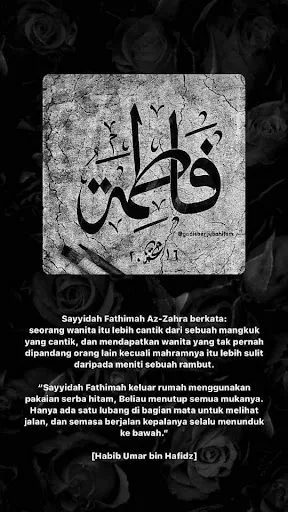 فاطمة
Sayyidah Fathimah Az-Zahra berkata:
seorang wanita itu lebih cantik dari sebuah mangkuk
yang cantik, dan mendapatkan wanita yang tak pernah
dipandang orang lain kecuali mahramnya itu lebih sulit
daripada meniti sebuah rambut.
“Sayyidah Fathimah keluar rumah menggunakan
pakaian serba hitam, Beliau menutup semua mukanya.
Hanya ada satu lubang di bagian mata untuk melihat
jalan, dan semasa berjalan kepalanya selalu menunduk
ke bawah.”
[Habib Umar bin Hafidz]